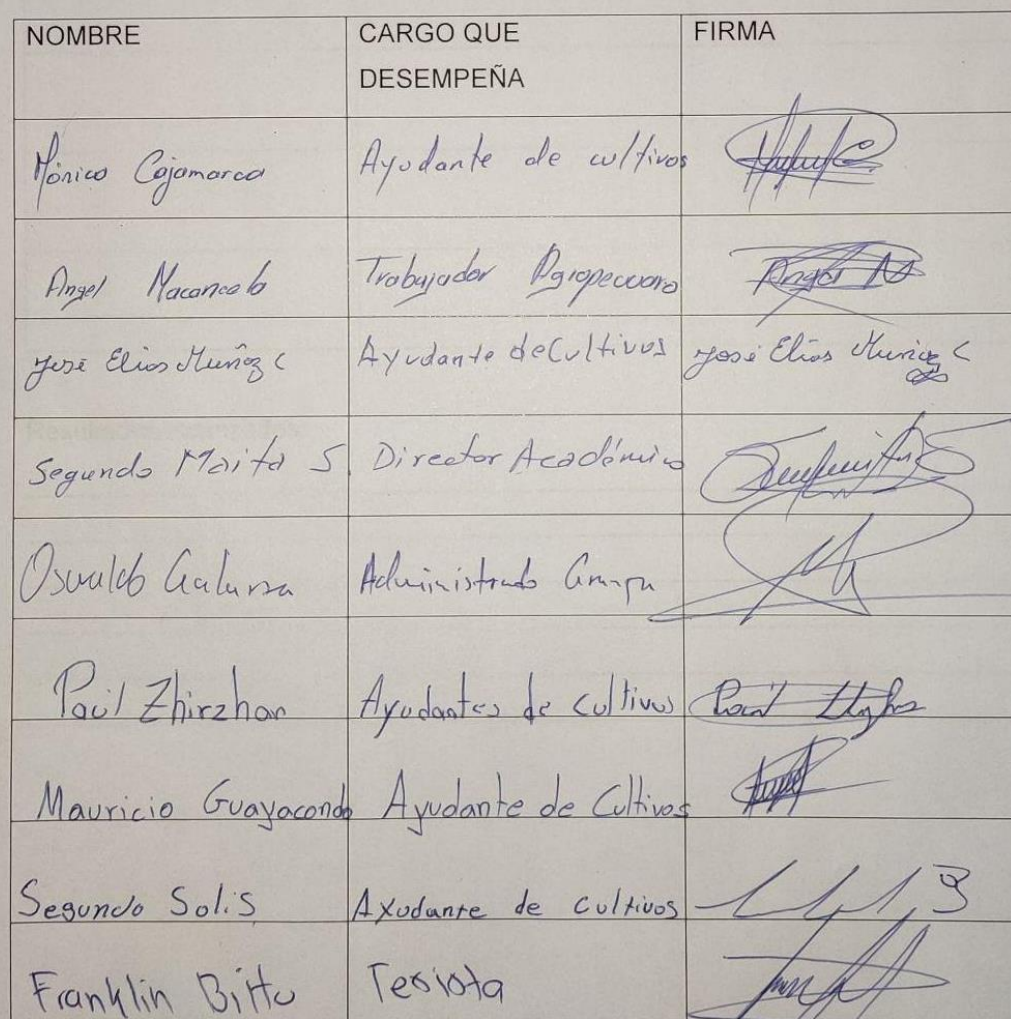 NOMBRE CARGO QUE DESEMPEÑA FIRMA
Mónica Cajamarca Ayudante de cultivos
Angel Macancela Trabajador Agropecuaro Angel M
José Elias Muñoz C Ayudante de Cultivos José Elias Muñoz C
Segundo Maita S. Director Académico
Osvaldo Galarza Administrado
Paúl Zhirzhan Ayudantes de cultivos Paúl
Mauricio Guayacondo Ayudante de Cultivos
Segundo Solis Ayudante de cultivos
Franklin Tesista